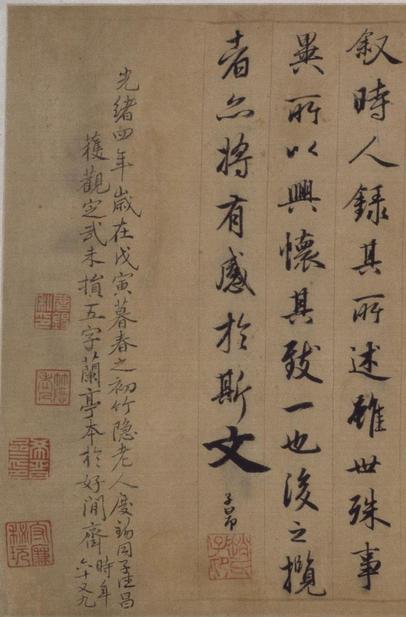 叙時人錄其所述雖世殊事
異所以興懷其致一也後之攬
者亦將有感於斯文
子昂
趙氏子昂
光緒四年歲在戊寅暮春之初竹隐老人度同子昌
獲觀定武未損五字蘭亭本於好閒齋時年
六十又九